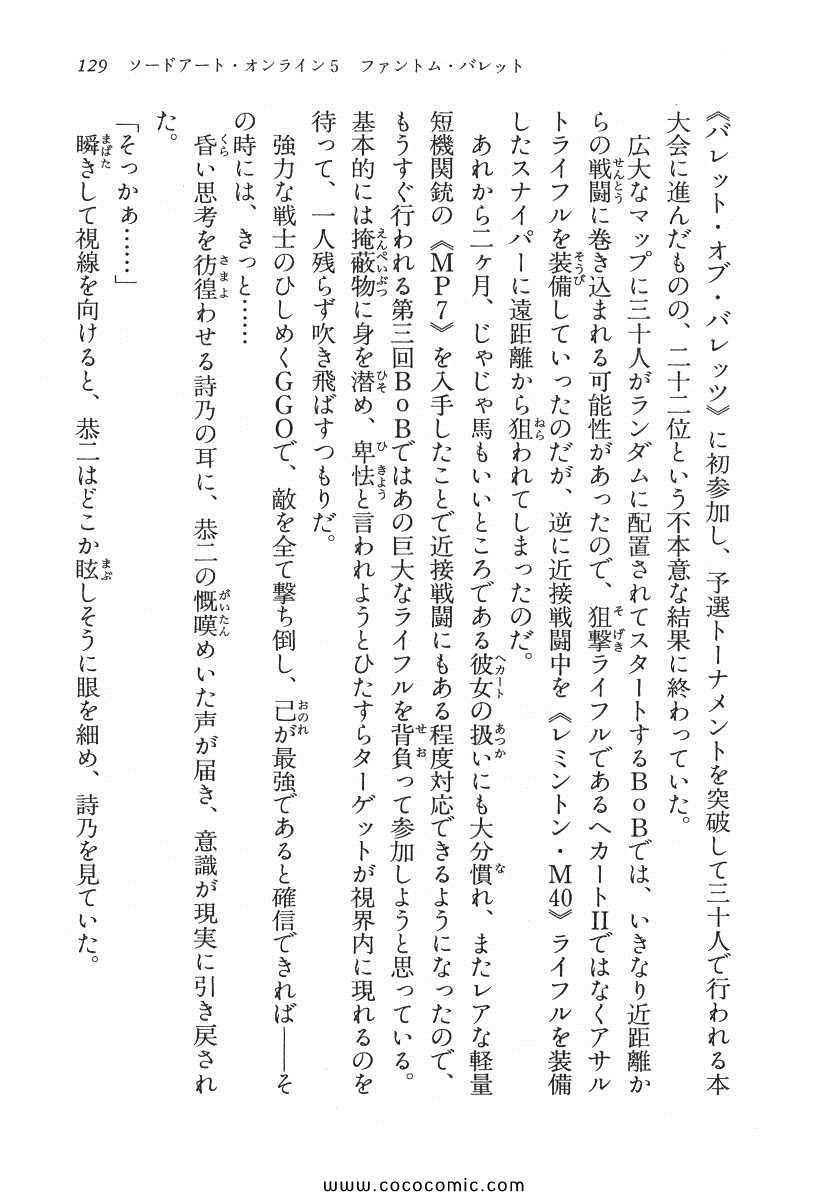 129 ソードアート・オンライン5 ファントム・バレット
《バレット・オブ・バレッツ》に初参加し、予選トーナメントを突破して三十人で行われる本
大会に進んだものの、二十二位という不本意な結果に終わっていた。
広大なマップに三十人がランダムに配置されてスタートするBoBでは、いきなり近距離か
らの戦闘に巻き込まれる可能性があったので、狙撃ライフルであるヘカートIIではなくアサル
トライフルを装備していったのだが、逆に近接戦闘中を《レミントン・M40》ライフルを装備
したスナイパーに遠距離から狙われてしまったのだ。
あれから二ヶ月、じゃじゃ馬もいいところである彼女の扱いにも大分慣れ、またレアな軽量
短機関銃の《MP7》を入手したことで近接戦闘にもある程度対応できるようになったので、
もうすぐ行われる第三回BoBではあの巨大なライフルを背負って参加しようと思っている。
基本的には掩蔽物に身を潜め、卑怯と言われようとひたすらターゲットが視界内に現れるのを
待って、一人残らず吹き飛ばすつもりだ。
強力な戦士のひしめくGGOで、敵を全て撃ち倒し、己が最強であると確信できれば――そ
の時には、きっと……
昏い思考を彷徨わせる詩乃の耳に、恭二の慨嘆めいた声が届き、意識が現実に引き戻され
た。
「そっかぁ……」
瞬きして視線を向けると、恭二はどこか眩しそうに眼を細め、詩乃を見ていた。
www.cococomic.com